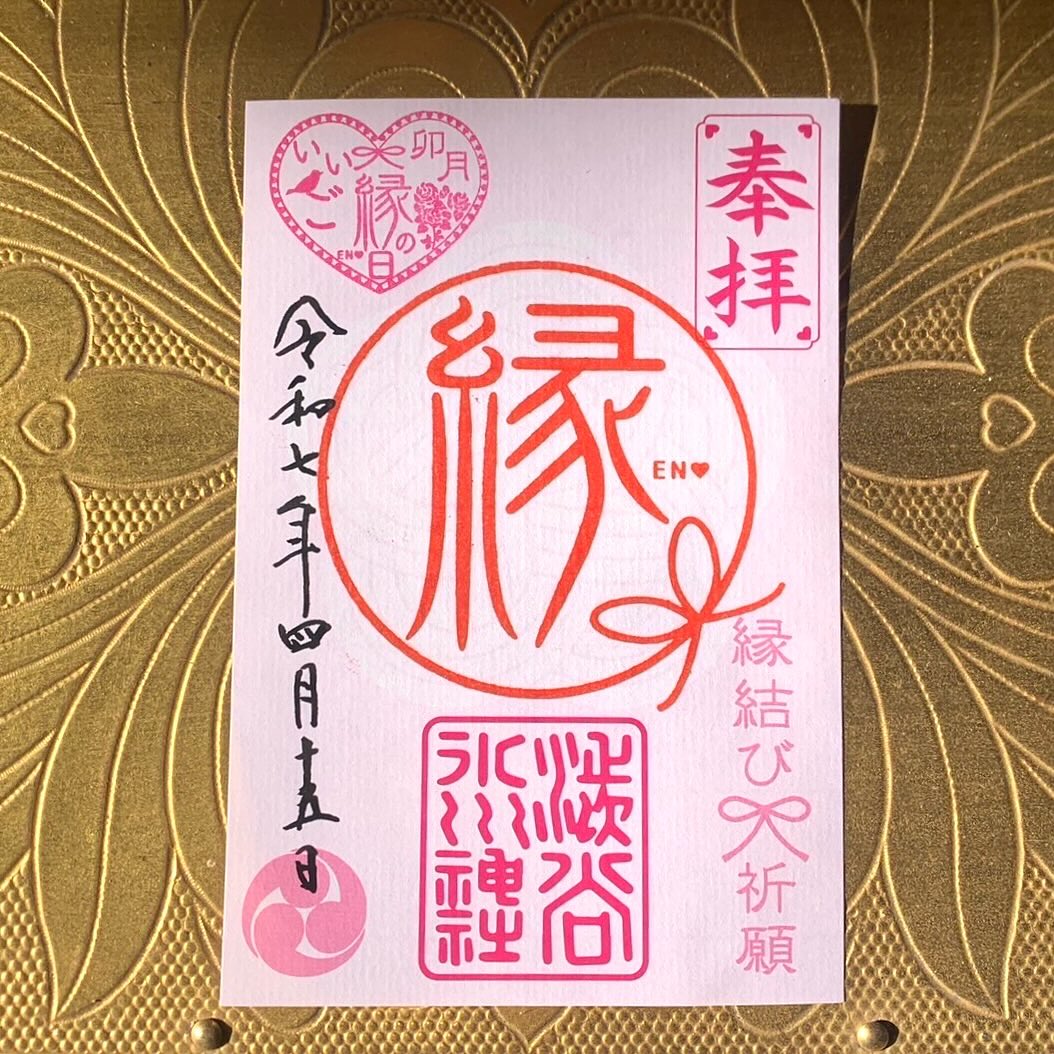 奉拝
縁結び祈願
縁
EN♥
渋谷
氷川神社
卯月
縁の日
EN♥
いいご
令和七年四月十五日